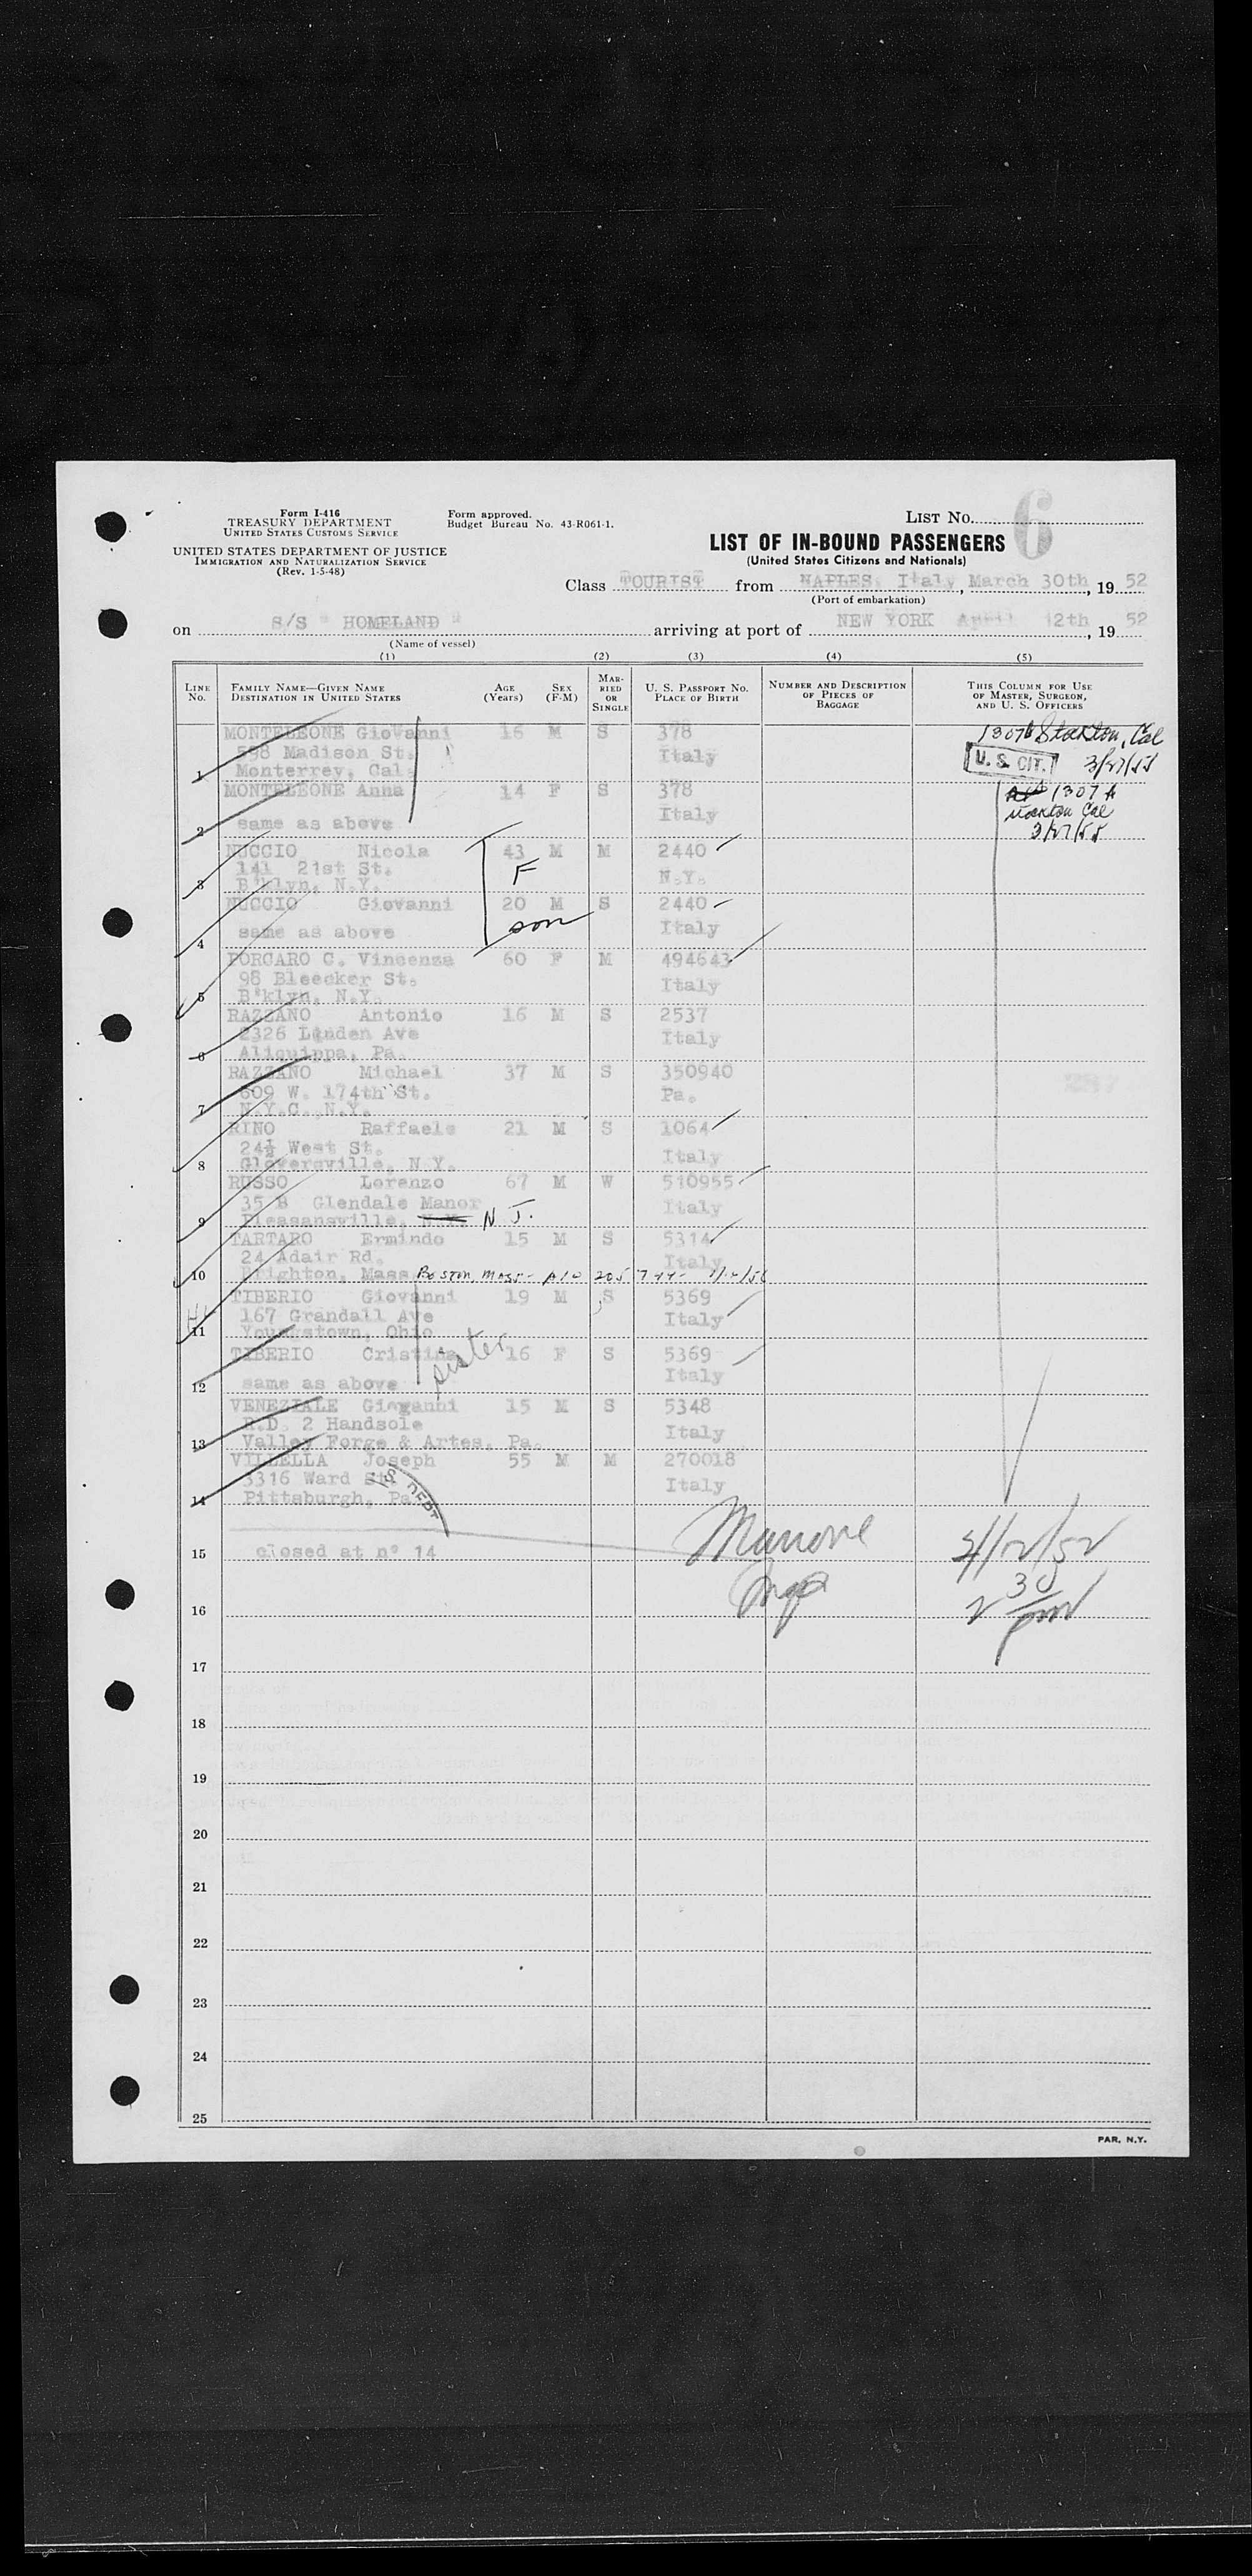 Form I-416
TREASURY DEPARTMENT
UNITED STATES CUSTOMS SERVICE
Form approved.
Budget Bureau No. 43-R061-1.
LIST No. 6
UNITED STATES DEPARTMENT OF JUSTICE
IMMIGRATION AND NATURALIZATION SERVICE
(Rev. 1-5-48)
LIST OF IN-BOUND PASSENGERS
(United States Citizens and Nationals)
Class TOURIST from NAPLES, Italy, March 30th, 19 52
(Port of embarkation)
on S/S " HOMELAND " arriving at port of NEW YORK April 12th, 19 52
(Name of vessel)
(1) (2) (3) (4) (5)
LINE No. FAMILY NAME—GIVEN NAME DESTINATION IN UNITED STATES AGE (Years) SEX (F-M) MARRIED OR SINGLE U. S. PASSPORT NO. PLACE OF BIRTH NUMBER AND DESCRIPTION OF PIECES OF BAGGAGE THIS COLUMN FOR USE OF MASTER, SURGEON, AND U. S. OFFICERS
MONTELEONE Giovanni 16 M S 378 Stockton, Cal
598 Madison St. Italy U. S. CIT.
1 Monterrey, Cal.
MONTELEONE Anna 14 F S 378 1307 A
2 same as above Italy Stockton Cal
NUCCIO Nicola 43 M M 2440
141 21st St. F N.Y.
3 B'klyn, N.Y.
NUCCIO Giovanni 20 M S 2440
4 same as above son Italy
PORCARO C. Vincenza 60 F M 494643
98 Bleecker St. Italy
5 B'klyn, N.Y.
RAZZANO Antonio 16 M S 2537
2326 Linden Ave Italy
6 Aliquippa, Pa.
RAZZANO Michael 37 M S 350940
609 W. 174th St. Pa.
7 N.Y.C., N.Y.
RINO Raffaele 21 M S 1064
24½ West St. Italy
8 Gloversville, N.Y.
RUSSO Lorenzo 67 M W 510955
35 B Glendale Manor Italy
9 Pleasansville, N.Y. N J.
TARTARO Ermindo 15 M S 5314
24 Adair Rd. Italy
10 Brighton, Mass BOSTON, MASS-
TIBERIO Giovanni 19 M S 5369
167 Grandall Ave Italy
11 Youngstown, Ohio
TIBERIO Cristina sister 16 F S 5369
12 same as above Italy
VENEZIALE Giovanni 15 M S 5348
R.D. 2 Handsole Italy
13 Valley Forge & Artes, Pa.
VILLELLA Joseph 55 M M 270018
3316 Ward St. Italy
14 Pittsburgh, Pa
15 closed at n° 14 4/12/52
16 2 30 pm
17
18
19
20
21
22
23
24
25
PAR. N.Y.